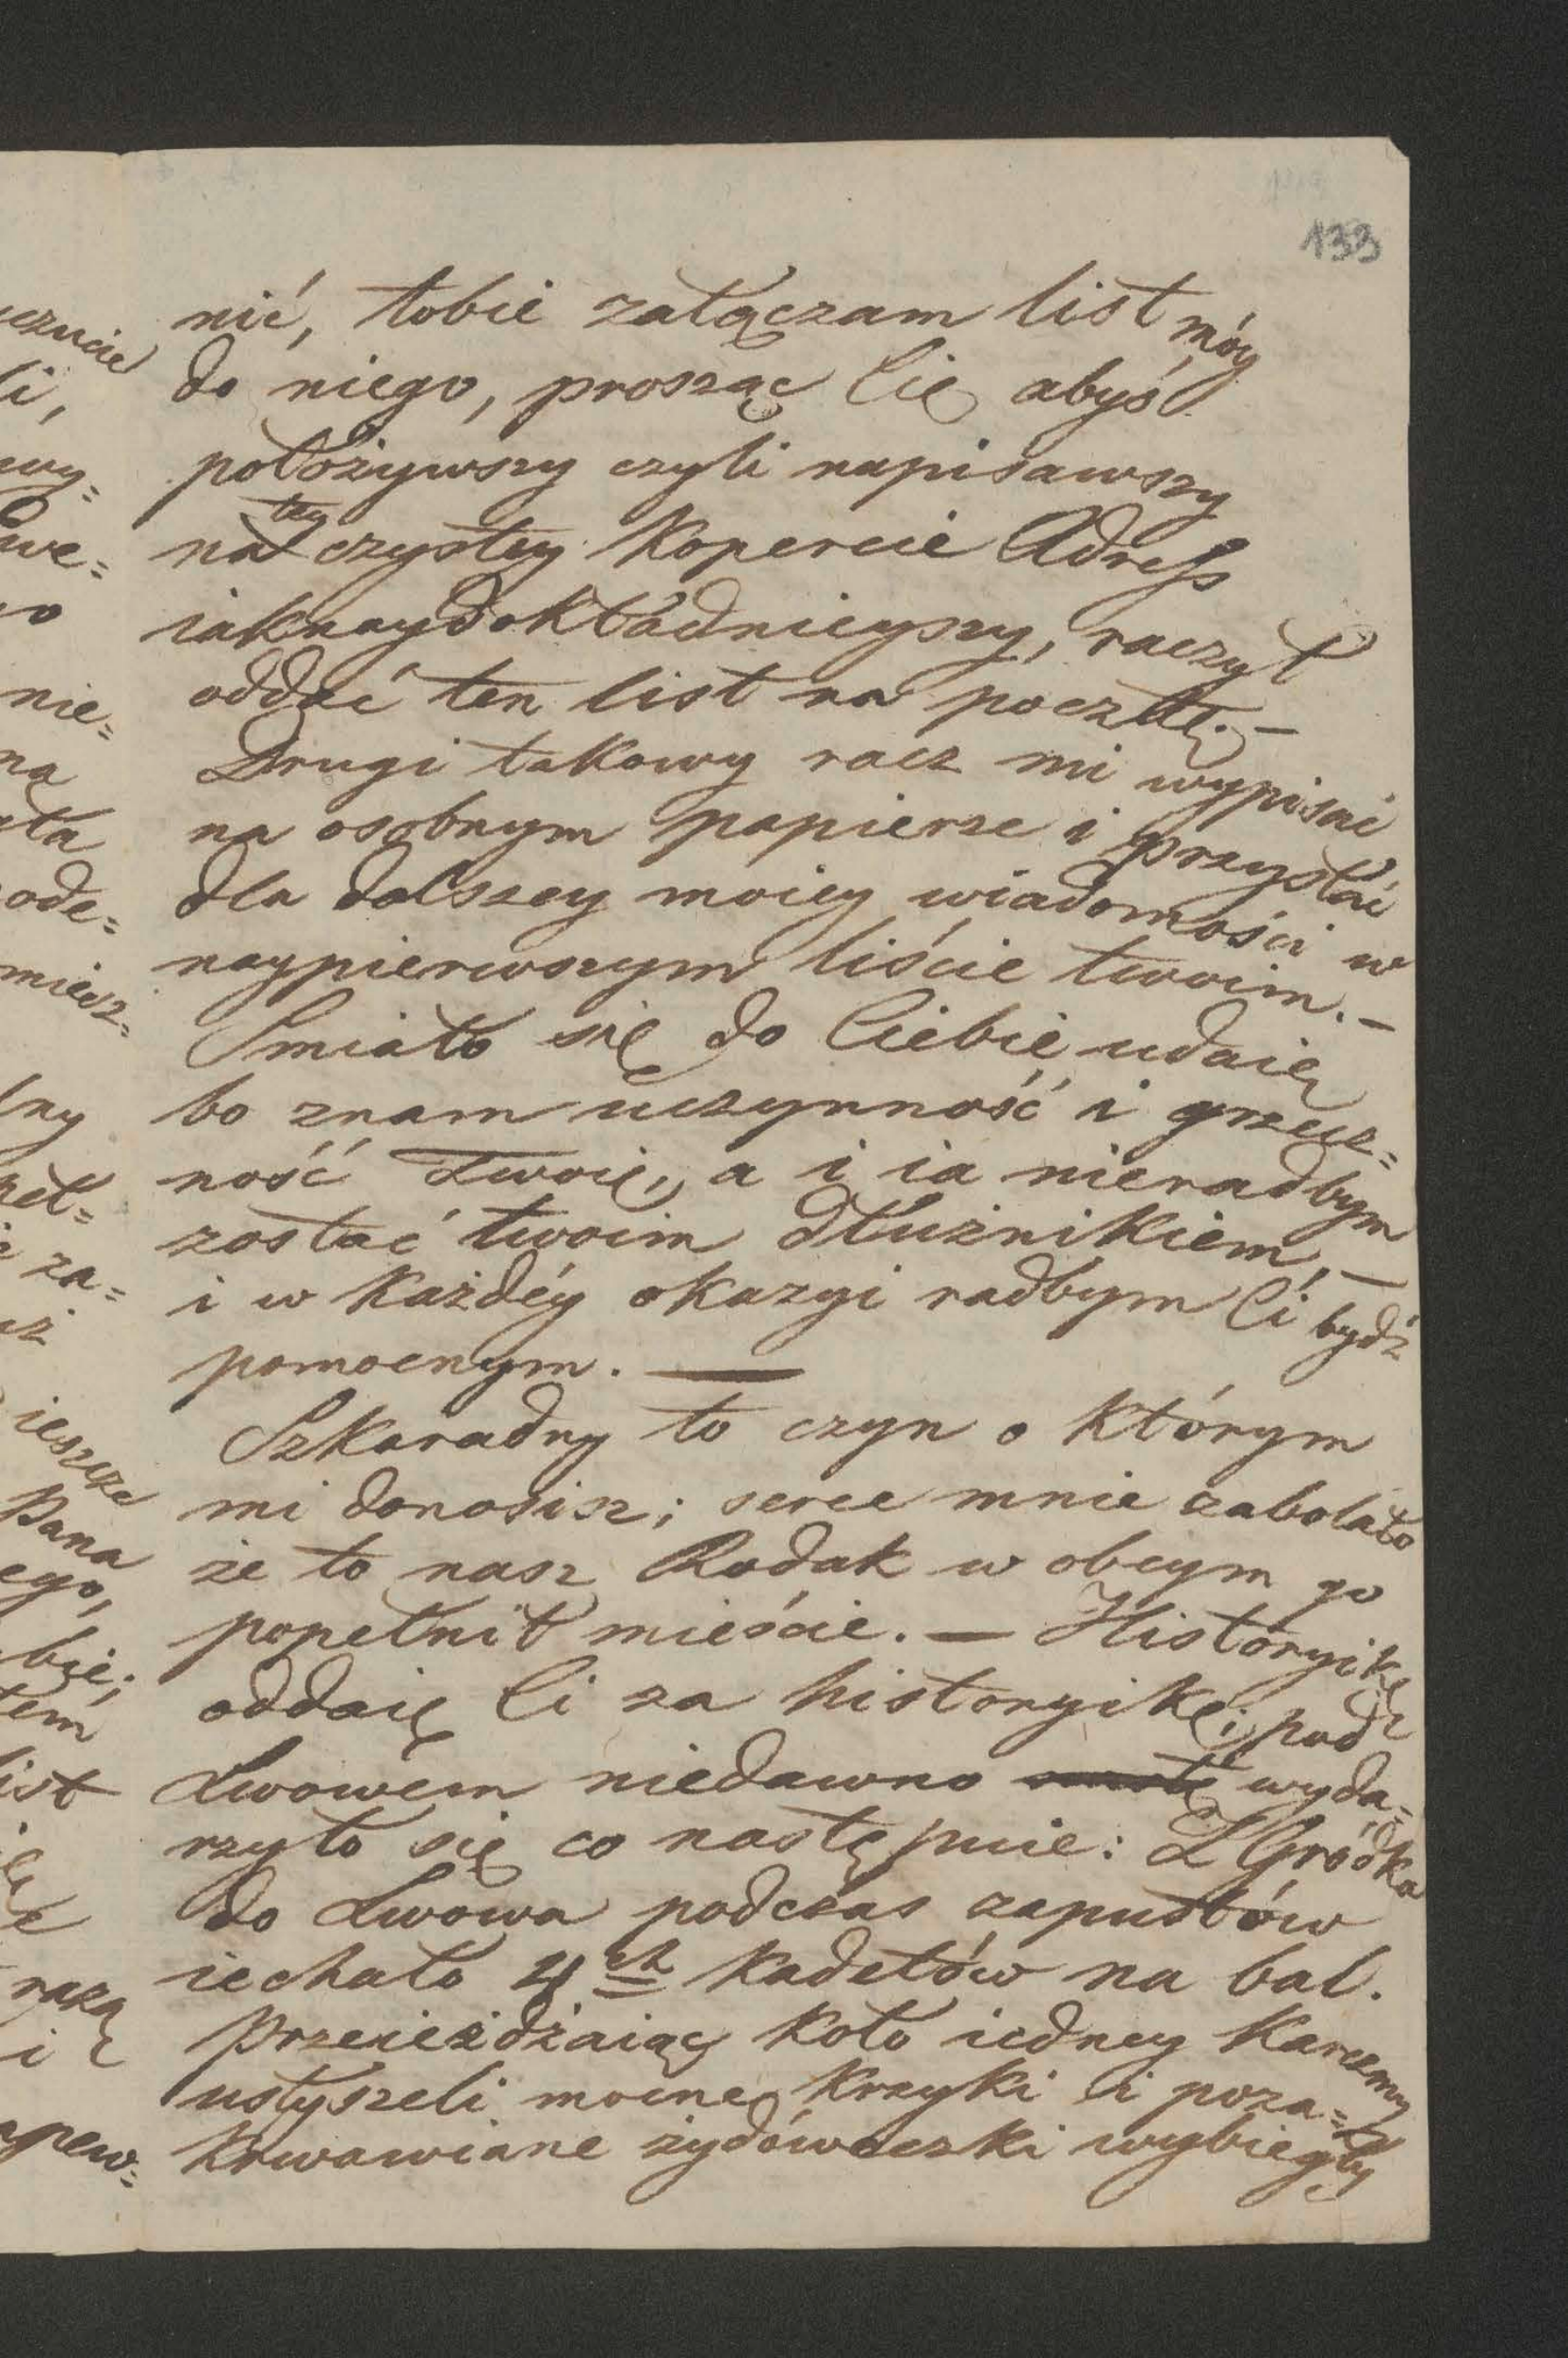 133
nić, tobie załączam list móy
do niego, prosząc Cię abyś
położywszy czyli napisawszy
na tey czystey kopercie Adress
iaknaydokładnieyszy, raczył
oddać ten list na pocztę. —
Drugi takowy racz mi wypisać
na osobnym papierze i przysłać
dla dalszey moiey wiadomości w
naypierwszym liście twoim. —
Smiało się do Ciebie udaię
bo znam uczynność i grzecz=
ność Twoię, a i ia nieradbym
zostać twoim dłużnikiem, —
i w każdéy okazyi radbym Ci bydź
pomocnym. —
Szkaradny to czyn o którym
mi donosisz; serce mnie zabolało
że to nasz Rodak w obcym go
popełnił mieście. — Historyikę
oddaię Ci za historyikę; pod
Lwowem niedawno wyda=
rzyło się co następuie: Z Gródka
do Lwowa podczas zapustów
iechało 4ch kadetów na bal.
Przeieżdżaiąc koło iedney karczmy
usłyszeli mocne krzyki i poza=
krwawiane żydóweczki wybiegły
czucie
li,
wy=
we=
nie=
na
ode=
miesz=
lny
za=
ieszcze
Pana
ego,
bie;
tem
list
razą
i
apew=